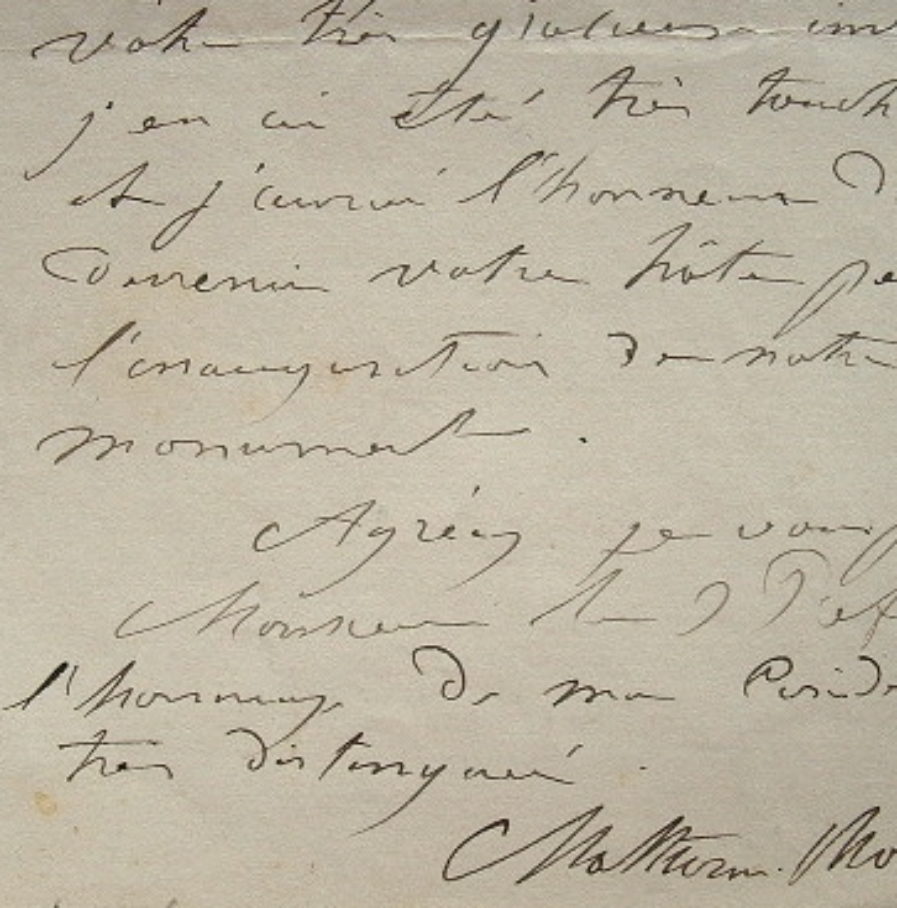 votre très gracieuse inv
j'en ai été très touch
et j'aurai l'honneur d
devenir votre hôte pe
l'inauguration de notre
monument.
Agréez je vous
Monsieur le Préf
l'hommage de ma Considé
très distinguée.
Mathurin Mo